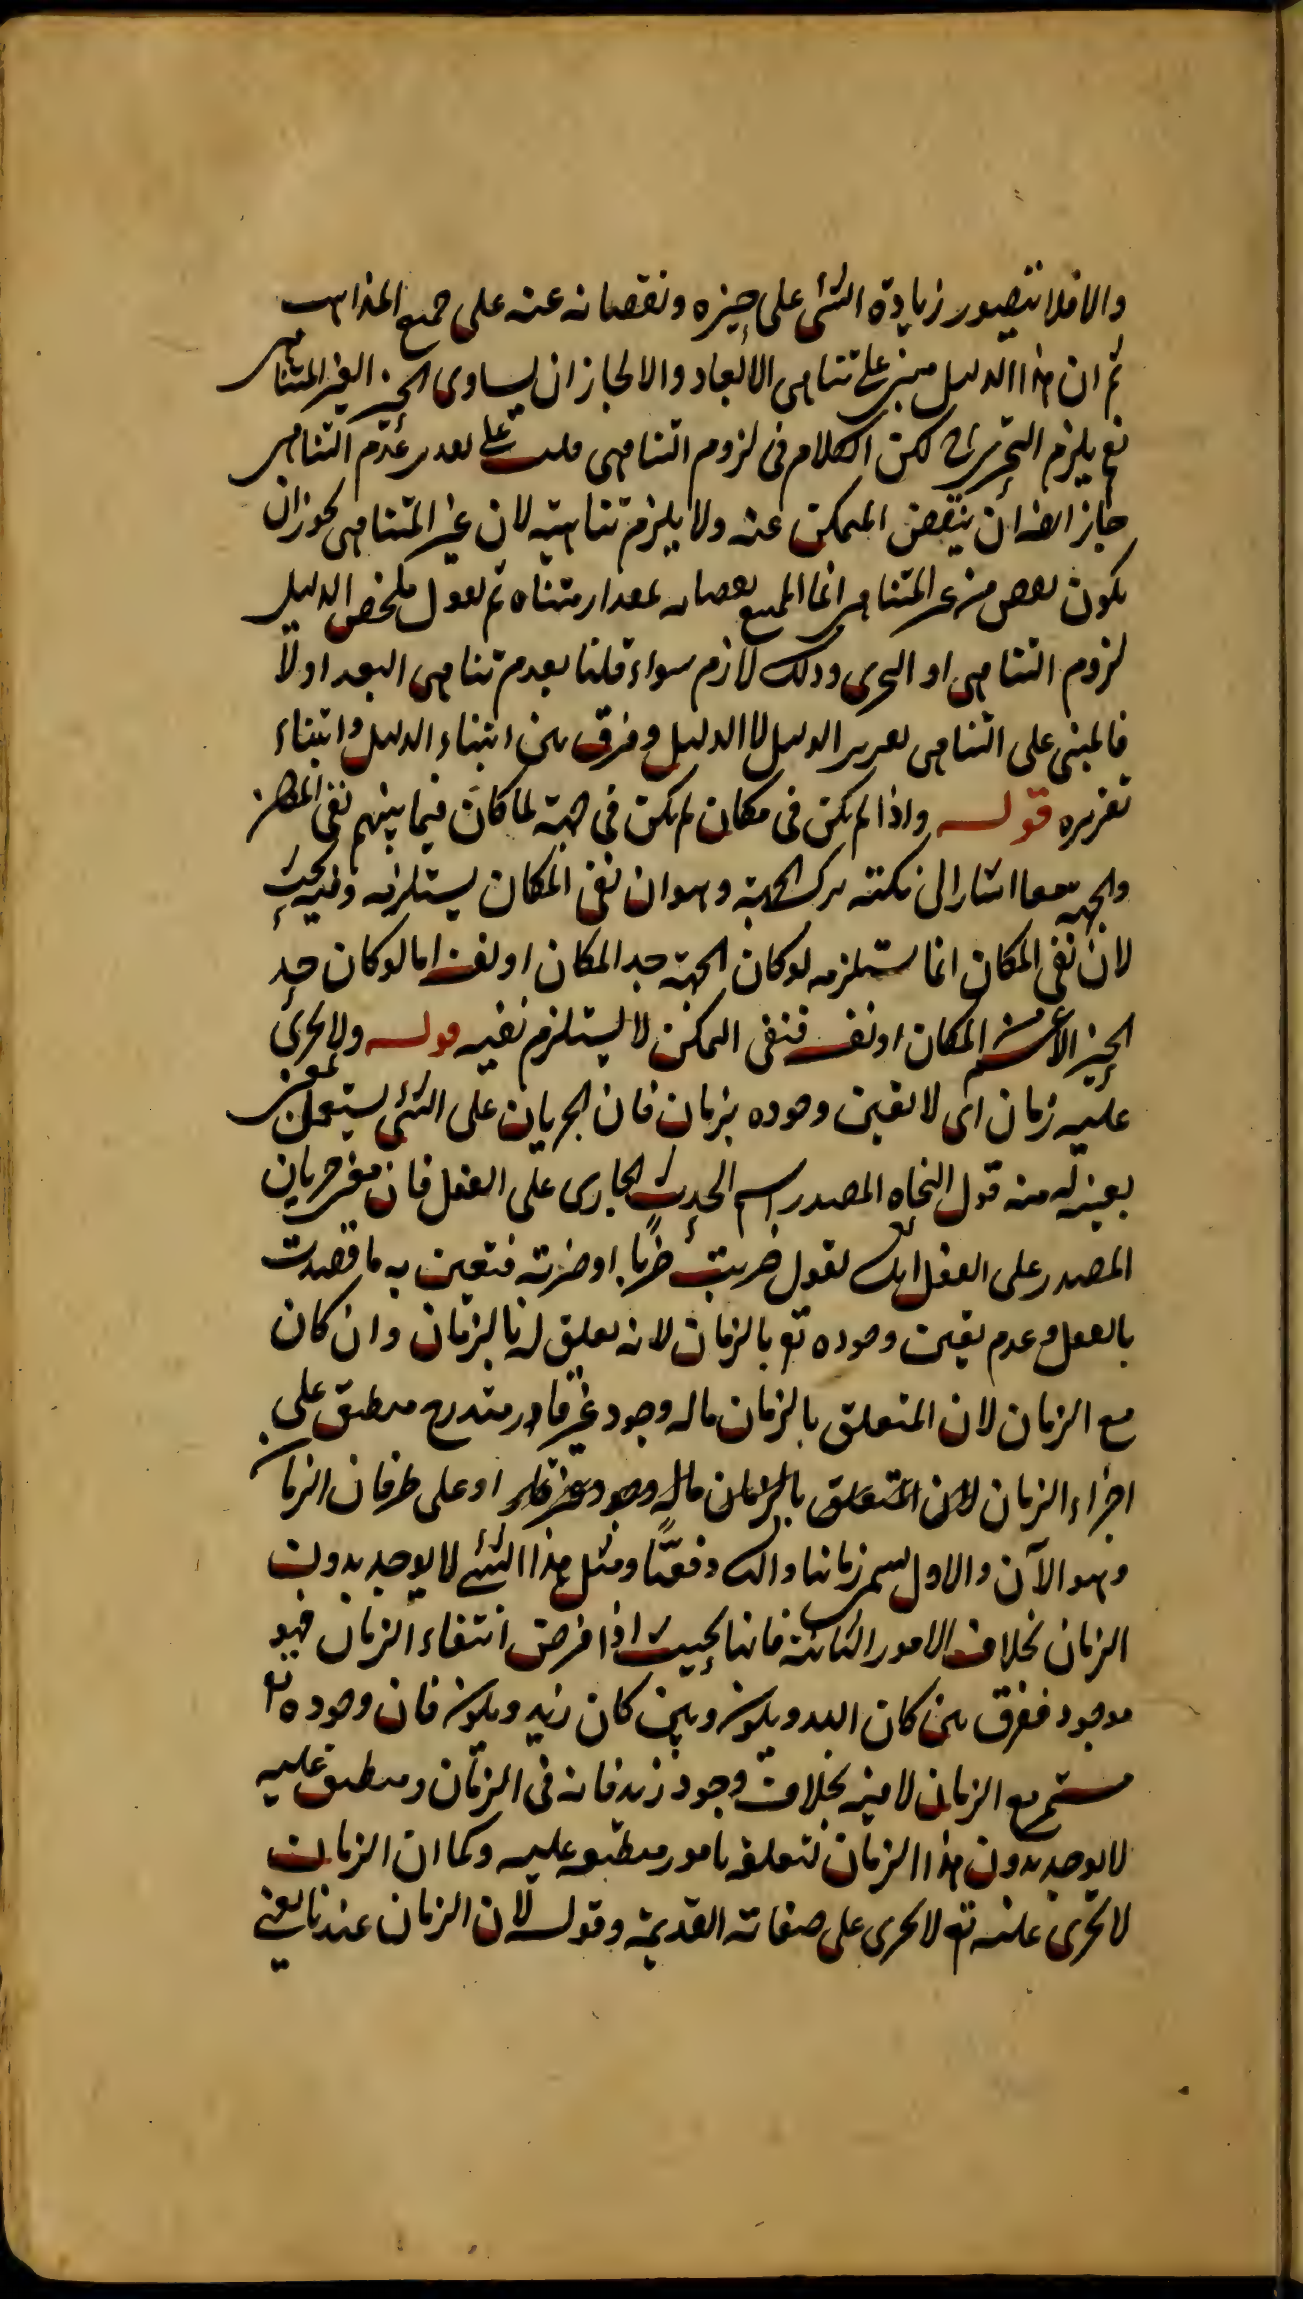 والا فلا يتصور زيادة الشئ على حيزه ونقصانه عنه على جميع المذاهب
ثم ان هذا الدليل مبنى على تناهى الابعاد والا لجاز ان يساوى الحيز الغير المتناهى
نعم يلزم التجزى ح لكن الكلام فى لزوم التناهى قلت على تقدير عدم التناهى
جاز ايضا ان ينقص المتمكن عنه ولا يلزم تناهيه لان غير المتناهى يجوز ان
يكون انقص من غير المتناهى انما الممتنع نقصانه بمقدار متناه ثم نقول ملخص الدليل
لزوم التناهى او التجزى وذلك لازم سواء قلنا بعدم تناهى البعد اولا
فالمبنى على التناهى تقرير الدليل لا الدليل وفرق بين ابتناء الدليل وابتناء
تقريره قوله واذا لم يكن فى مكان لم يكن فى جهة لما كان فيما بينهم نفى المكان
والجهة معا اشار الى نكتة ترك الجهة وهو ان نفى المكان يستلزمه وفيه بحث
لان نفى المكان انما يستلزمه لو كان الجهة حد المكان او نفسه اما لو كان حد
الحيز الاعم من المكان او نفسه فنفى التمكن لا يستلزم نفيه قوله ولا يجرى
عليه زمان اى لا يتعين وجوده بزمان فان الجريان على الشئ يستعمل بمعنى
تعينه له منه قول النحاة المصدر اسم الحدث الجارى على الفعل فان معنى جريان
المصدر على الفعل انك تقول ضربت ضربا او ضربته فتعين به ما قصدت
بالفعل وعدم تعين وجوده تع بالزمان لانه لا تعلق له بالزمان وان كان
مع الزمان لان المتعلق بالزمان ماله وجود غير قار متدرج منطبق على
اجزاء الزمان لان المتعلق بالزمان ماله وجود غير قار او على طرف الزمان
وهو الآن والاول يسمى زمانيا والثانى دفعيا ومثل هذا الشئ لا يوجد بدون
الزمان بخلاف الامور الثابتة فانها بحيث اذا فرض انتفاء الزمان فهو
موجود ففرق بين كان الله ويكون وبين كان زيد ويكون فان وجوده تع
مستمر مع الزمان لا فيه بخلاف وجود زيد فانه فى الزمان ومنطبق عليه
لا يوجد بدون هذا الزمان لتعلقه بامور منطبقة عليه وكما ان الزمان
لا يجرى عليه تع لا يجرى على صفاته القديمة وقوله لان الزمان عندنا يعنى